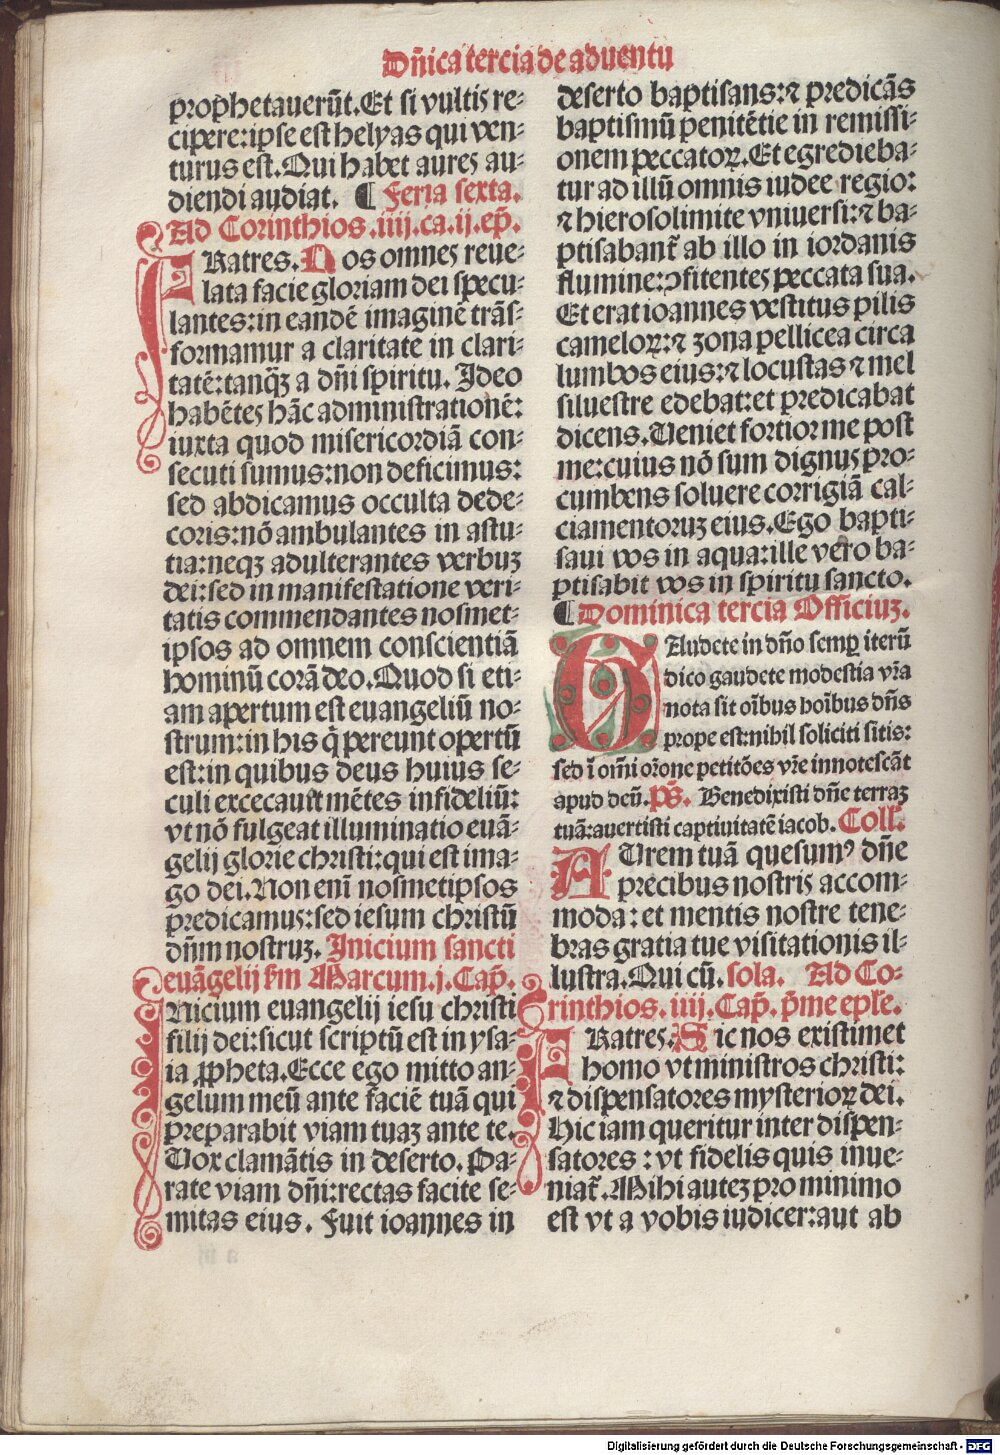 Dñica tercia de aduentu
prophetauerūt. Et si vultis re⸗
cipere: ipse est helyas qui ven⸗
turus est. Qui habet aures au⸗
diendi audiat. ¶ Feria sexta.
Ad Corinthios .iiij. ca. ij. ep̄.
FRatres. Nos omnes reue⸗
lata facie gloriam dei specu⸗
lantes: in eandē imaginē trās⸗
formamur a claritate in clari⸗
tatē: tanq̄ꝫ a dñi spiritu. Ideo
habētes hāc administrationē:
iuxta quod misericordiā con⸗
secuti sumus: non deficimus:
sed abdicamus occulta dede⸗
coris: nō ambulantes in astu⸗
tia: neqꝫ adulterantes verbuꝫ
dei: sed in manifestatione veri⸗
tatis commendantes nosmet⸗
ipsos ad omnem conscientiā
hominū corā deo. Quod si eti⸗
am apertum est euangeliū no⸗
strum: in his q̄ pereunt opertū
est: in quibus deus huius se⸗
culi excecauit mētes infideliū:
vt nō fulgeat illuminatio euā⸗
gelij glorie christi: qui est ima⸗
go dei. Non enī nosmetipsos
predicamus: sed iesum christū
dñm nostruꝫ. Inicium sancti
euāgelij sm̄ Marcum. j. Cap̄.
INicium euangelij iesu christi
filij dei: sicut scriptū est in ysa⸗
ia ꝓpheta. Ecce ego mitto an⸗
gelum meū ante faciē tuā qui
preparabit viam tuaꝫ ante te.
Vox clamātis in deserto. Pa⸗
rate viam dñi: rectas facite se⸗
mitas eius. Fuit ioannes in
deserto baptisans: ⁊ predicās
baptismū penitētie in remissi⸗
onem peccatoꝝ. Et egredieba⸗
tur ad illū omnis iudee regio:
⁊ hierosolimite vniuersi: ⁊ ba⸗
ptisabant᷑ ab illo in iordanis
flumine: ꝯfitentes peccata sua.
Et erat ioannes vestitus pilis
cameloꝝ: ⁊ zona pellicea circa
lumbos eius: ⁊ locustas ⁊ mel
siluestre edebat: et predicabat
dicens. Veniet fortior me post
me: cuius nō sum dignus pro⸗
cumbens soluere corrigiā cal⸗
ciamentoruꝫ eius. Ego bapti⸗
saui vos in aqua: ille vero ba⸗
ptisabit vos in spiritu sancto.
¶ Dominica tercia Officiuꝫ.
GAudete in dño semꝑ iterū
dico gaudete modestia vr̄a
nota sit oībus hoībus dñs
prope est: nihil soliciti sitis:
sed ī om̄i or̄one petitōes vr̄e innotescāt
apud deū. p̄s. Benedixisti dñe terraꝫ
tuā: auertisti captiuitatē iacob. Coll.
AUrem tuā quesumꝰ dñe
precibus nostris accom⸗
moda: et mentis nostre tene⸗
bras gratia tue visitationis il⸗
lustra. Qui cū. sola. Ad Co⸗
rinthios. iiij. Cap̄. p̄me ep̄le.
FRatres. Sic nos existimet
homo vt ministros christi:
⁊ dispensatores mysterioꝝ dei.
Hic iam queritur inter dispen⸗
satores: vt fidelis quis inue⸗
niat᷑. Mihi auteꝫ pro minimo
est vt a vobis iudicer: aut ab
Digitalisierung gefördert durch die Deutsche Forschungsgemeinschaft - DFG